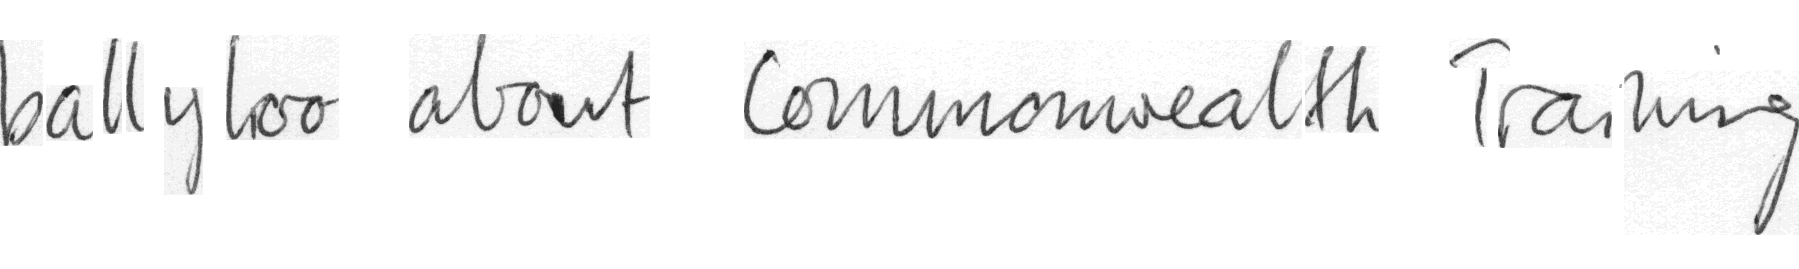 ballyhoo about Commonwealth Training